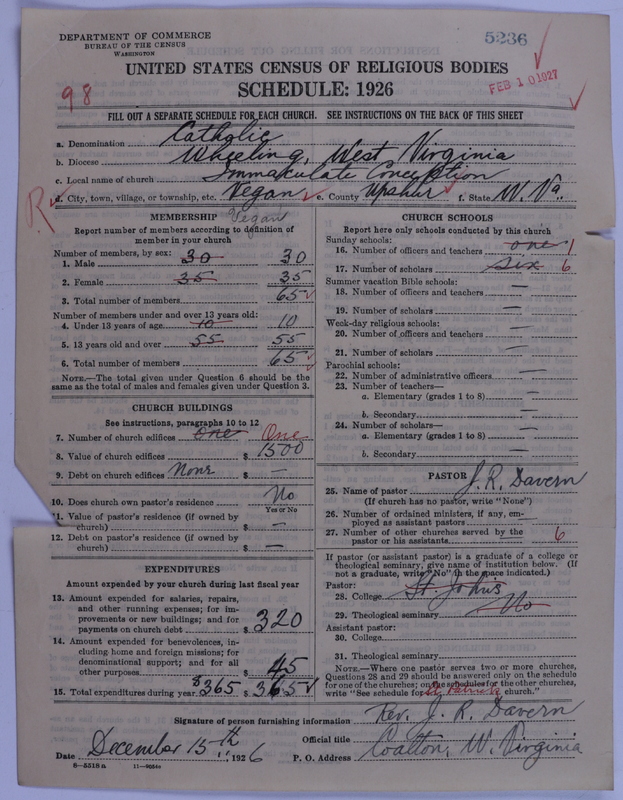 DEPARTMENT OF COMMERCE
BUREAU OF THE CENSUS
WASHINGTON
5236
UNITED STATES CENSUS OF RELIGIOUS BODIES
SCHEDULE: 1926
98
FEB 10 1927
FILL OUT A SEPARATE SCHEDULE FOR EACH CHURCH. SEE INSTRUCTIONS ON THE BACK OF THIS SHEET
a. Denomination Catholic
b. Diocese Wheeling, West Virginia
c. Local name of church Immaculate Conception
R
d. City, town, village, or township, etc. Vegan e. County Upshur f. State W. Va.
MEMBERSHIP Vegan
Report number of members according to definition of
member in your church
Number of members, by sex:
1. Male 30 30
2. Female 35 35
3. Total number of members 65
Number of members under and over 13 years old:
4. Under 13 years of age 10 10
5. 13 years old and over 55 55
6. Total number of members 65
NOTE.—The total given under Question 6 should be the
same as the total of males and females given under Question 3.
CHURCH BUILDINGS
See instructions, paragraphs 10 to 12
7. Number of church edifices One One
8. Value of church edifices $ 1500
9. Debt on church edifices None $ —
10. Does church own pastor's residence No
Yes or No
11. Value of pastor's residence (if owned by
church) $ —
12. Debt on pastor's residence (if owned by
church) $ —
EXPENDITURES
Amount expended by your church during last fiscal year
13. Amount expended for salaries, repairs,
and other running expenses; for im-
provements or new buildings; and for
payments on church debt $ 320
14. Amount expended for benevolences, in-
cluding home and foreign missions; for
denominational support; and for all
other purposes $ 45
15. Total expenditures during year $365 $ 365
CHURCH SCHOOLS
Report here only schools conducted by this church
Sunday schools:
16. Number of officers and teachers one 1
17. Number of scholars six 6
Summer vacation Bible schools:
18. Number of officers and teachers —
19. Number of scholars —
Week-day religious schools:
20. Number of officers and teachers —
21. Number of scholars —
Parochial schools:
22. Number of administrative officers —
23. Number of teachers—
a. Elementary (grades 1 to 8) —
b. Secondary —
24. Number of scholars—
a. Elementary (grades 1 to 8) —
b. Secondary —
PASTOR
25. Name of pastor J. R. Davern
(If church has no pastor, write "None")
26. Number of ordained ministers, if any, em-
ployed as assistant pastors —
27. Number of other churches served by the
pastor or his assistants 6
If pastor (or assistant pastor) is a graduate of a college or
theological seminary, give name of institution below. (If
not a graduate, write "No" in the space indicated.)
Pastor:
28. College St. John's
29. Theological seminary No
Assistant pastor:
30. College
31. Theological seminary
NOTE.—Where one pastor serves two or more churches,
Questions 28 and 29 should be answered only on the schedule
for one of the churches; on the schedules for the other churches,
write "See schedule for St. Patrick's church."
Signature of person furnishing information Rev. J. R. Davern
Official title
Date December 15th, 1926 P. O. Address Coalton, W. Virginia
8—5518 a